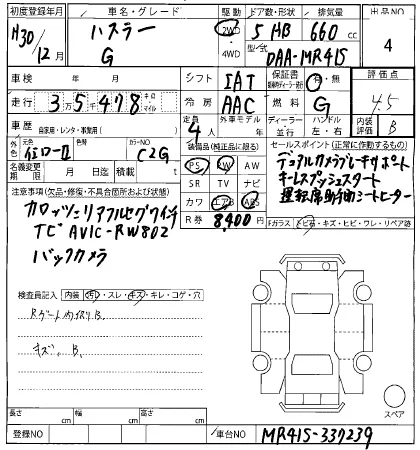 初度登録年月 車名・グレード 駆動 ドア数・形状 排気量 出品NO
H30/12月 ハスラー G 2WD・4WD 5 HB 660 cc 4
型式 DAA-MR41S
車検 年 月 シフト IAT 保証書 有・無 評価点
走行 35478 キロ・マイル 冷房 AAC 燃料 G 4.5
車歴 自家用・レンタ・事業用( ) 定員 4人 外車モデル 年 ディーラー・並行 ハンドル 左・右 内装評価 B
外色 元色 カラーNO C2G
装備品(純正品に限る) セールスポイント(正常に作動するもの)
名義変更 月 日迄 積載 t
PS PW AW
SR TV ナビ
カワ エアB ABS
R券 8,400円
デュアルカメラブレーキサポート
キーレスプッシュスタート
運転席 シートヒーター
注意事項(欠品・修復・不具合箇所および状態)
カロッツェリアフルセグワイド
TビAVIC-RW802
バックカメラ
Fガラス トビ石・キズ・ヒビ・ワレ・リペア跡
検査員記入 内装 汚・スレ・キズ・キレ・コゲ・穴
キズ B.
スペア
長さ cm 幅 cm 高さ cm
登録NO 車台NO MR41S-337239